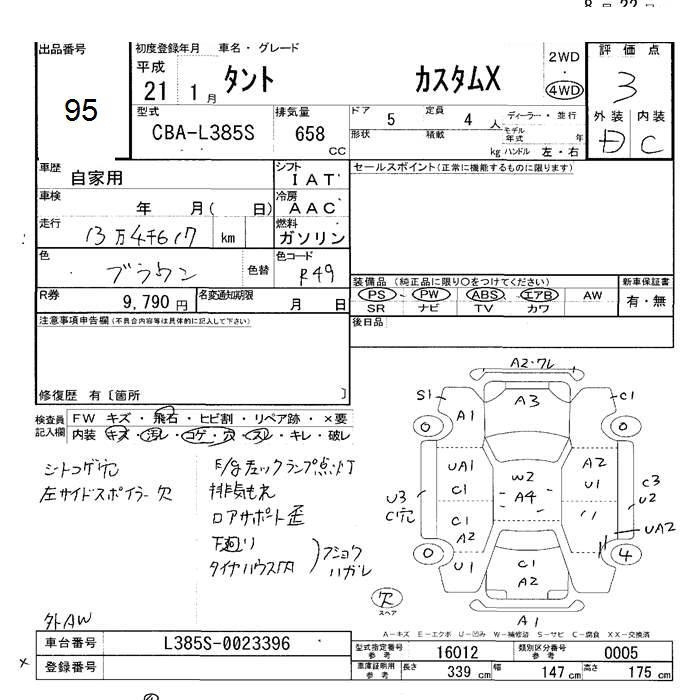 8月22日
出品番号
95
初度登録年月 車名・グレード
平成
21 1月 タント カスタムX
2WD
・
4WD
評価点
3
型式
CBA-L385S
排気量
658
CC
ドア 5 定員 4 人
形状 積載 kg
ディーラー・並行
モデル年式 年
ハンドル 左・右
外装 内装
D C
車歴
自家用
シフト
IAT
セールスポイント(正常に機能するものに限ります)
車検
年 月( 日)
冷房
AAC
走行
13万4千617 km
燃料
ガソリン
色
ブラウン
色替
色コード
R49
装備品 (純正品に限り○をつけてください)
PS・PW ABS エアB AW
SR ナビ TV カワ
新車保証書
有・無
R券
9,790円
名変通知期限
月 日
後日品
注意事項申告欄(不具合内容等は具体的に記入して下さい)
修復歴 有〔箇所 〕
検査員記入欄
FW キズ・飛石・ヒビ割・リペア跡・×要
内装 キズ・汚レ・コゲ・穴・スレ・キレ・破レ
シートコゲ穴
左サイドスポイラー欠
E/gチェックランプ点灯
排気もれ
ロアサポート歪
下廻り
タイヤハウス内
フショク
ハガレ
外AW
A2・ワレ
S1 A1 A3 C1
0 0
UA1 C1 W2 A4 A2 U1
U3 C穴 C3 U2
C1 A2 UA2
0 U1 C1 A2 4
欠
スペア
A1
A-キズ E-エクボ U-凹み W-補修跡 S-サビ C-腐食 XX-交換済
車台番号
L385S-0023396
型式指定番号
参考
16012
類別区分番号
参考
0005
×
登録番号
車庫証明用
参考
長さ 339 cm 幅 147 cm 高さ 175 cm